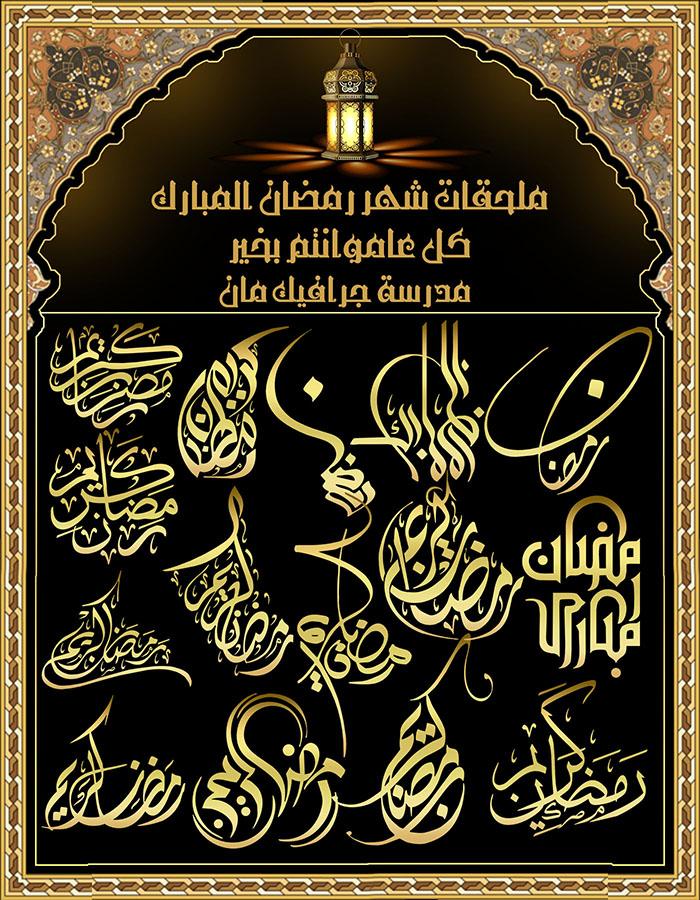 ملحقات شهر رمضان المبارك
كل عام وانتم بخير
مدرسة جرافيك مان
رمضان
رمضان المبارك
رمضان
رمضان كريم
رمضان كريم
رمضان مبارك
رمضان كريم
رمضان كريم
رمضان الكريم
رمضان كريم
رمضان كريم
رمضان كريم
رمضان كريم